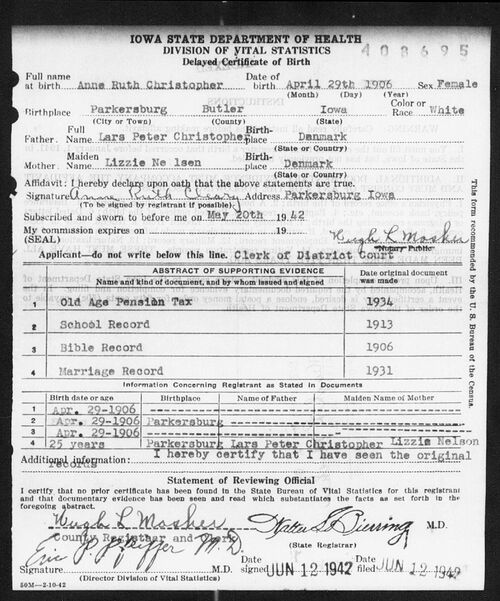 IOWA STATE DEPARTMENT OF HEALTH
DIVISION OF VITAL STATISTICS
Delayed Certificate of Birth
408695
Full name at birth Anne Ruth Christopher Date of birth April 29th 1906 Sex Female
(Month) (Day) (Year)
Birthplace Parkersburg Butler Iowa Color or Race White
(City or Town) (County) (State)
Father: Full Name Lars Peter Christopher Birthplace Denmark
(State or Country)
Mother: Maiden Name Lizzie Ne lsen Birthplace Denmark
(State or Country)
Affidavit: I hereby declare upon oath that the above statements are true.
Signature Anne Ruth Cleary Address Parkersburg Iowa
(To be signed by registrant if possible)
Subscribed and sworn to before me on May 20th 1942
My commission expires on 19
(SEAL) Hugh L Mosher
Notary Public
Applicant—do not write below this line. Clerk of District Court
ABSTRACT OF SUPPORTING EVIDENCE
Name and kind of document, and by whom issued and signed Date original document was made
1 Old Age Pension Tax 1934
2 School Record 1913
3 Bible Record 1906
4 Marriage Record 1931
Information Concerning Registrant as Stated in Documents
Birth date or age Birthplace Name of Father Maiden Name of Mother
1 Apr. 29-1906
2 Apr. 29-1906 Parkersburg
3 Apr. 29-1906
4 25 years Parkersburg Lars Peter Christopher Lizzie Nelson
Additional information: I hereby certify that I have seen the original
records
Statement of Reviewing Official
I certify that no prior certificate has been found in the State Bureau of Vital Statistics for this registrant
and that documentary evidence has been seen and read which substantiates the facts as set forth in the
foregoing abstract.
Hugh L Mosher Walter L Bierring M.D.
County Registrar and Clerk (State Registrar)
Eric P. Pfeiffer M.D.
M.D. Date signed JUN 12 1942 Date filed JUN 12 1942
(Director Division of Vital Statistics)
50M—2-10-42
This form recommended by the U. S. Bureau of the Census.